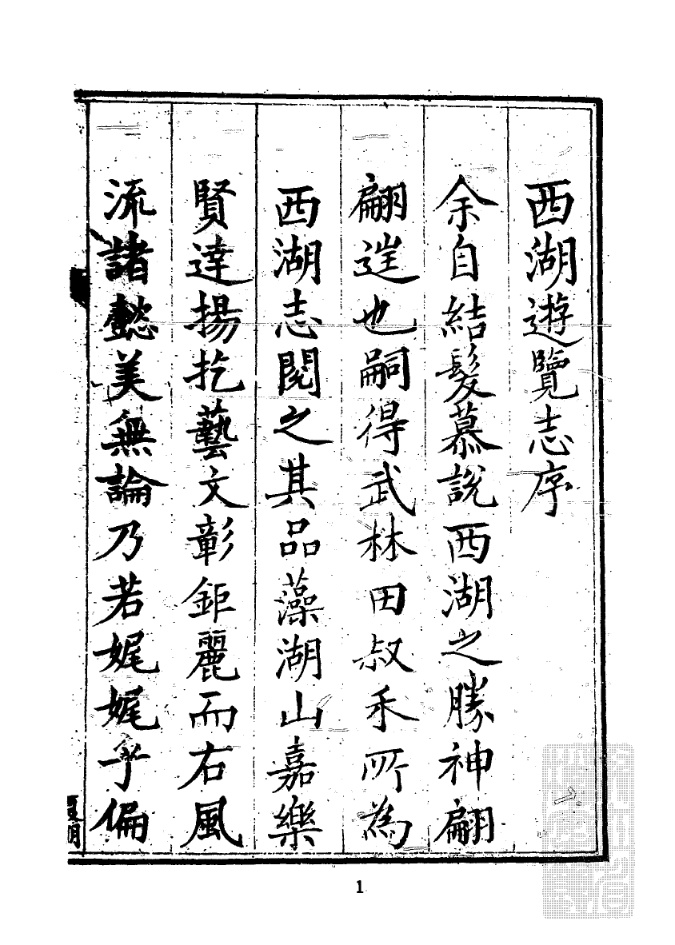 西湖遊覽志序
余自結髮慕說西湖之勝神翩
翩逞也嗣得武林田叔禾所為
西湖志閱之其品藻湖山嘉樂
賢達揚扢藝文彰鉅麗而右風
流諸懿美無論乃若娓娓乎偏
1